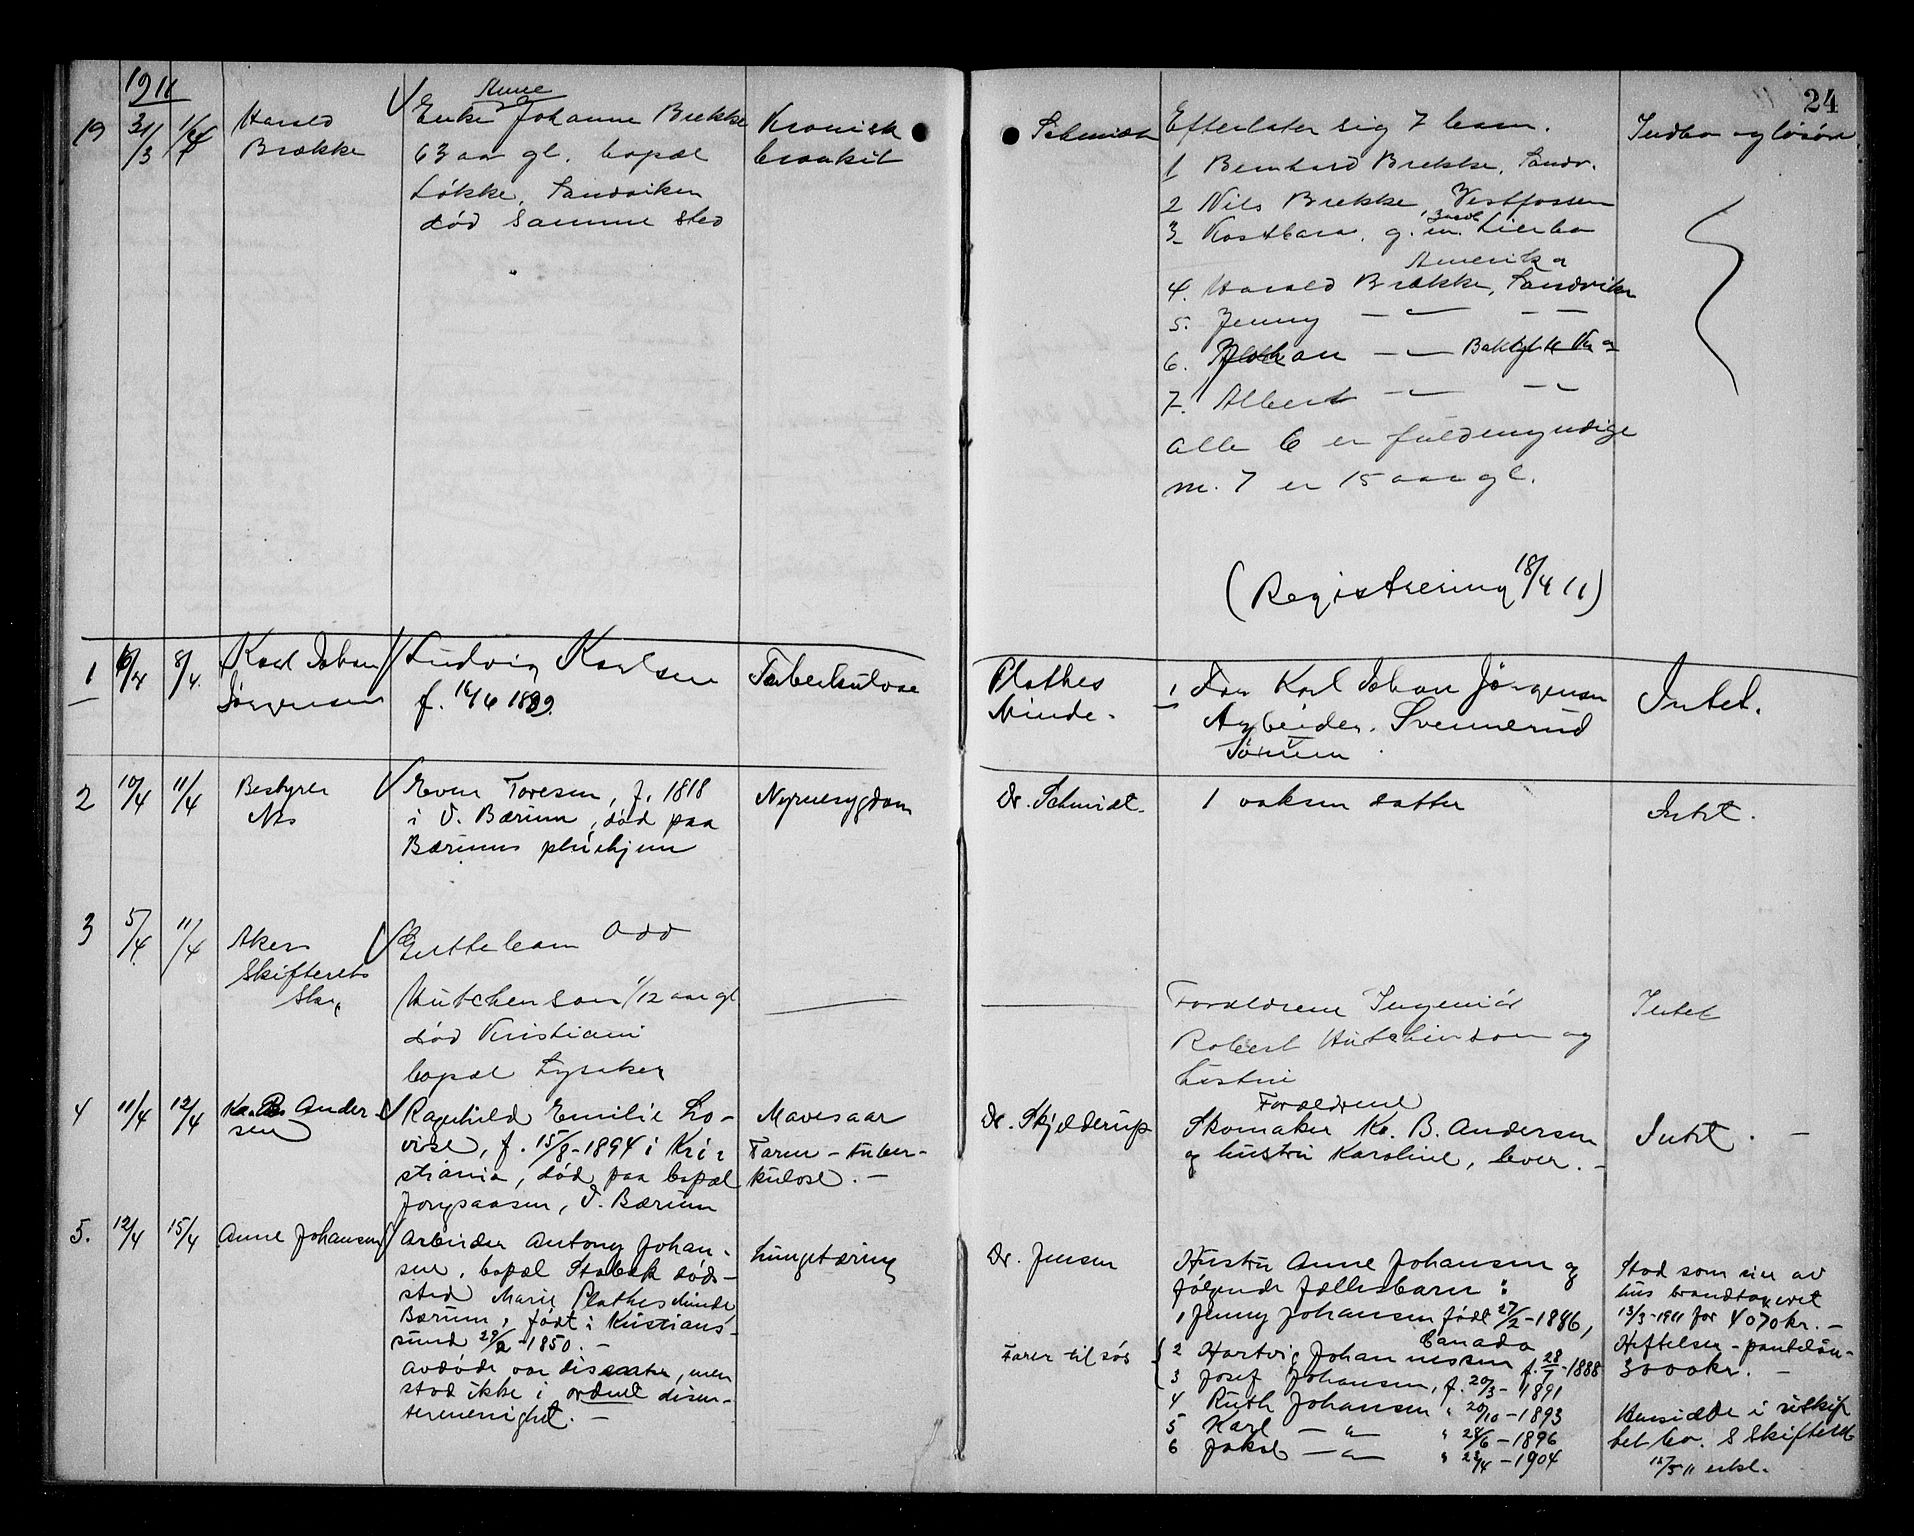 1911
24
19 31/3 1/4
Harald
Brække
Anne
Enke Johanne Brekke
63 aar gl. bopæl
Løkke, Sandviken
død samme sted
Kronisk
bronkit
Schmidt
Efterlater sig 7 barn.
1 Bernhard Brekke, Sandv.
2 Nils Brekke, Vestfossen
3 Kostbara, g. m. Lierbo
Amerika
4. Harald Brække, Sandviken
5. Jenny — " — — " —
6. Johan — " —
7. Albert — " — — " —
alle 6 er fuldmyndige
nr. 7 er 15 aar gl.
(Registrering 18/4 11)
Indbo og løsøre
1 6/4 8/4.
Karl Johan
Jørgensen
Ludvig Karlsen
f. 16/6 1899.
Tuberkulose
Plathes
Minde.
1 Far Karl Johan Jørgensen
Arbeider. Svennerud
Sørum
Intet.
2 10/4 11/4
Bestyrer
Næs
Even Toresen, f. 1818
i V. Bærum, død paa
Bærums pleiehjem
Nyresygdom
Dr. Schmidt.
1 voksen datter
Intet.
3 5/4 11/4
Akers
Skifterets
Skr.
Guttebarn Odd
Hutchenson 1/12 aar gl
død Kristiani
bopæl Lysaker
Forældrene Ingeniør
Robert Hutchinson og
hustru
Intet
4 11/4 12/4
Karl B. Ander-
sen
Ragnhild Emilie Lo-
vise, f. 15/8-1894 i Kri-
stiania, død paa bopæl
Jongsaasen, V. Bærum
Mavesaar
Tarm-tuber-
kulose. —
Dr. Skjelderup
Forældrene
Skomaker K. B. Andersen
og hustru Karoline, lever. —
Intet. —
5. 12/4 15/4
Anne Johansen
Arbeider Antony Johan-
sen, bopæl Stabæk døds-
sted Marie Plathes Minde
Bærum, født i Kristians-
sund 29/2-1850. —
Avdøde var dissenter, men
stod ikke i ordnet dissen-
termenighet. —
Lungetæring
Dr. Jensen
Farer til søs
Hustru Anne Johansen og
følgende fællesbarn:
1 Jenny Johansen født 27/2-1886,
Canada
2 Hartvig Johannessen f. 28/7-1888
3 Josef Johansen, f. 20/3-1891
4 Ruth Johansen " 20/10-1893
5 Karl — " — " 28/6-1896
6 Jakob — " — " 22/4-1904
Stod som eier av
hus brandtaxeret
13/3-1911 for 4070 kr. —
Heftelser - pantelån -
3000 kr. —
Hensidde i uskif
tet bo. S Skifteret
15/5 11 erkl.